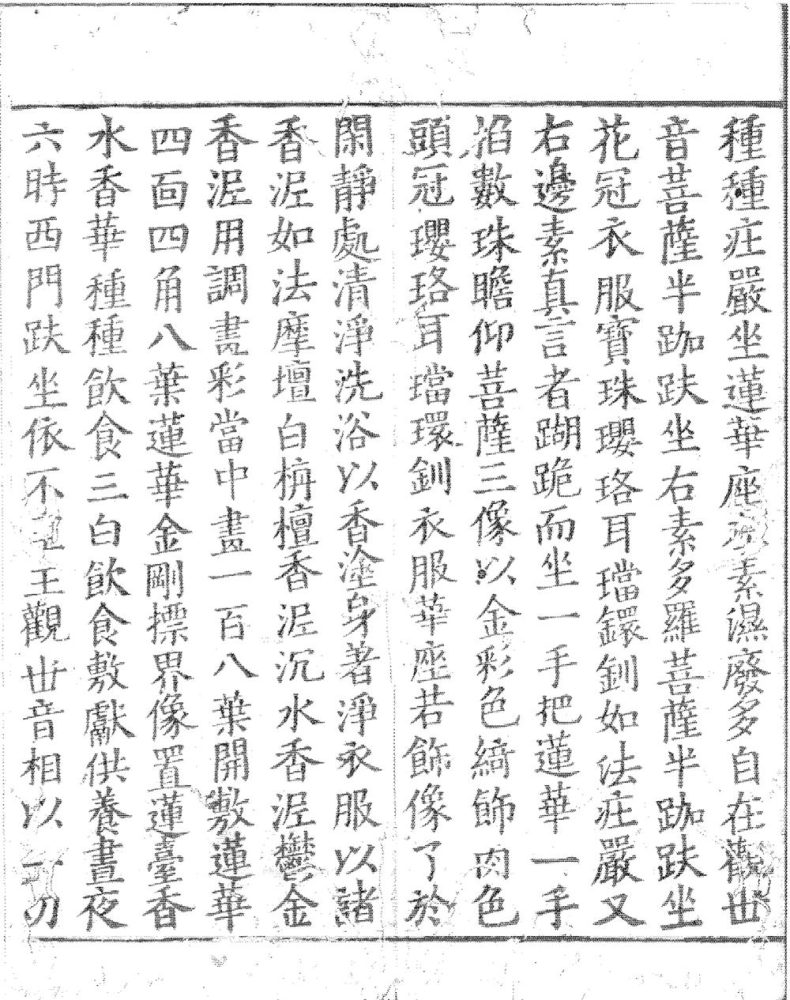 種種庄嚴坐蓮華座次素濕癈多自在觀丗
音菩薩半跏趺坐右素多羅菩薩半跏趺坐
花冠衣服寶珠瓔珞耳璫鐶釧如法庄嚴又
右邊素真言者蹦跪而坐一手把蓮華一手
掐數珠瞻仰菩薩三像以金彩色綺飾肉色
頭冠瓔珞耳璫環釧衣服華座若飾像了於
閑靜處清淨洗浴以香塗身著淨衣服以諸
香泥如法摩壇白栴檀香泥沉水香泥鬱金
香泥用調畫彩當中畫一百八葉開敷蓮華
四面四角八葉蓮華金剛摽界像置蓮臺香
水香華種種飲食三白飲食敷獻供養晝夜
六時西門趺坐依不空王觀丗音相以一切